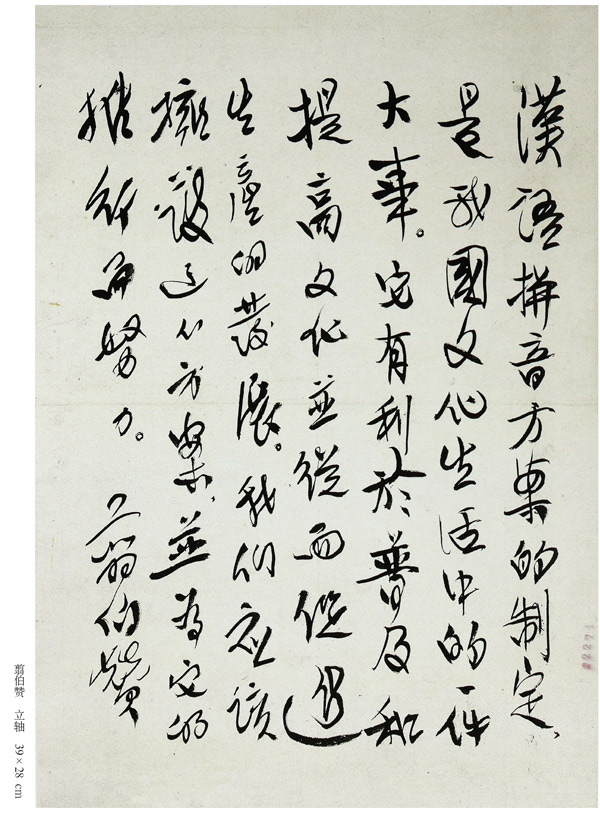 漢語拼音方案的制定、
是我國文化生活中的一件
大事。它有利於普及和
提高文化並從而促進
生產的發展。我們應該
擁護這个方案，並為它的
推行而努力。
翦伯贊
22271
翦伯赞 立轴 39×28 cm